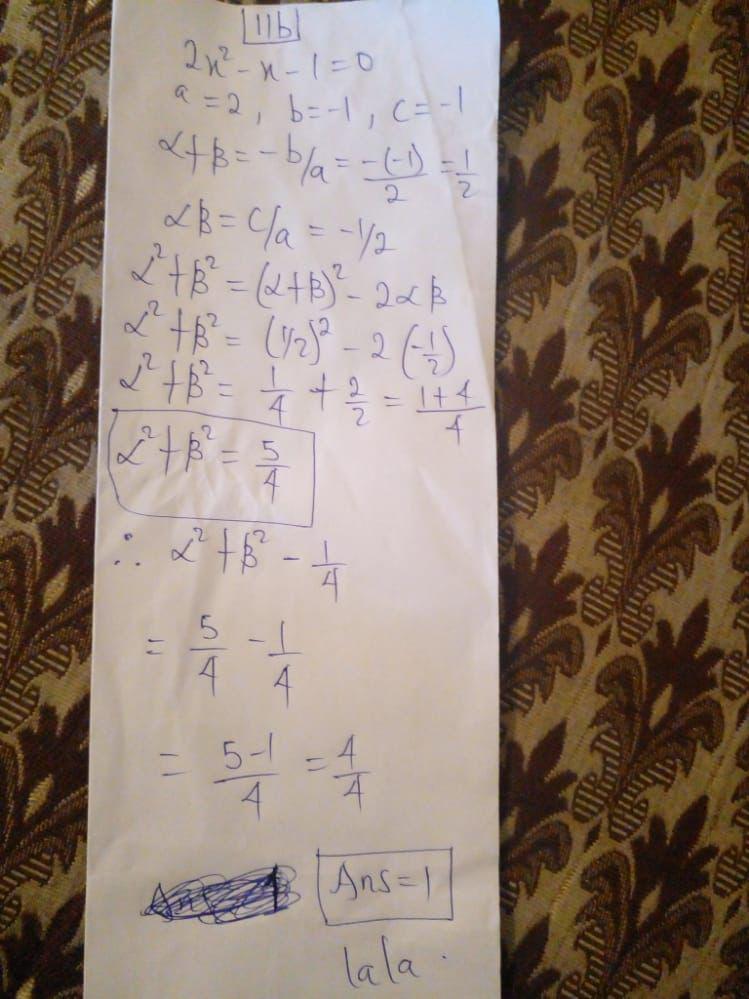 11b
2x² - x - 1 = 0
a = 2, b = -1, c = -1
α+β = -b/a = -(-1)/2 = 1/2
αβ = c/a = -1/2
α²+β² = (α+β)² - 2αβ
α²+β² = (1/2)² - 2(-1/2)
α²+β² = 1/4 + 2/2 = 1+4/4
α²+β² = 5/4
∴ α²+β² - 1/4
= 5/4 - 1/4
= 5-1/4 = 4/4
Ans = 1
lala.